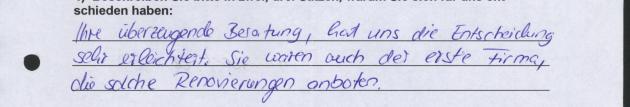 schieden haben:
Ihre überzeugende Beratung, hat uns die Entscheidung
sehr erleichtert. Sie waren auch der erste Firma,
die solche Renovierungen anboten.